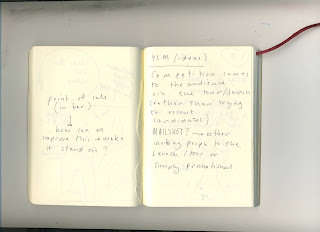 point of sale
(in bar)
↓
how can we
improve this + make
it stand out?
YLM (ideas)
Competition comes
to the audience
via the tour/launch
(rather than trying
to recruit
candidates)
MAILSHOT? → either
inviting people to the
launch/tour or
simply promotional